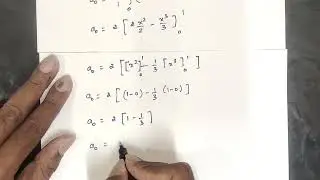 a₀ = 2 [ 2x²/2 - x³/3 ]₀¹
a₀ = 2 [ [x²]₀¹ - 1/3 [x³]₀¹ ]
a₀ = 2 [ (1-0) - 1/3 (1-0) ]
a₀ = 2 [ 1 - 1/3 ]
a₀ =